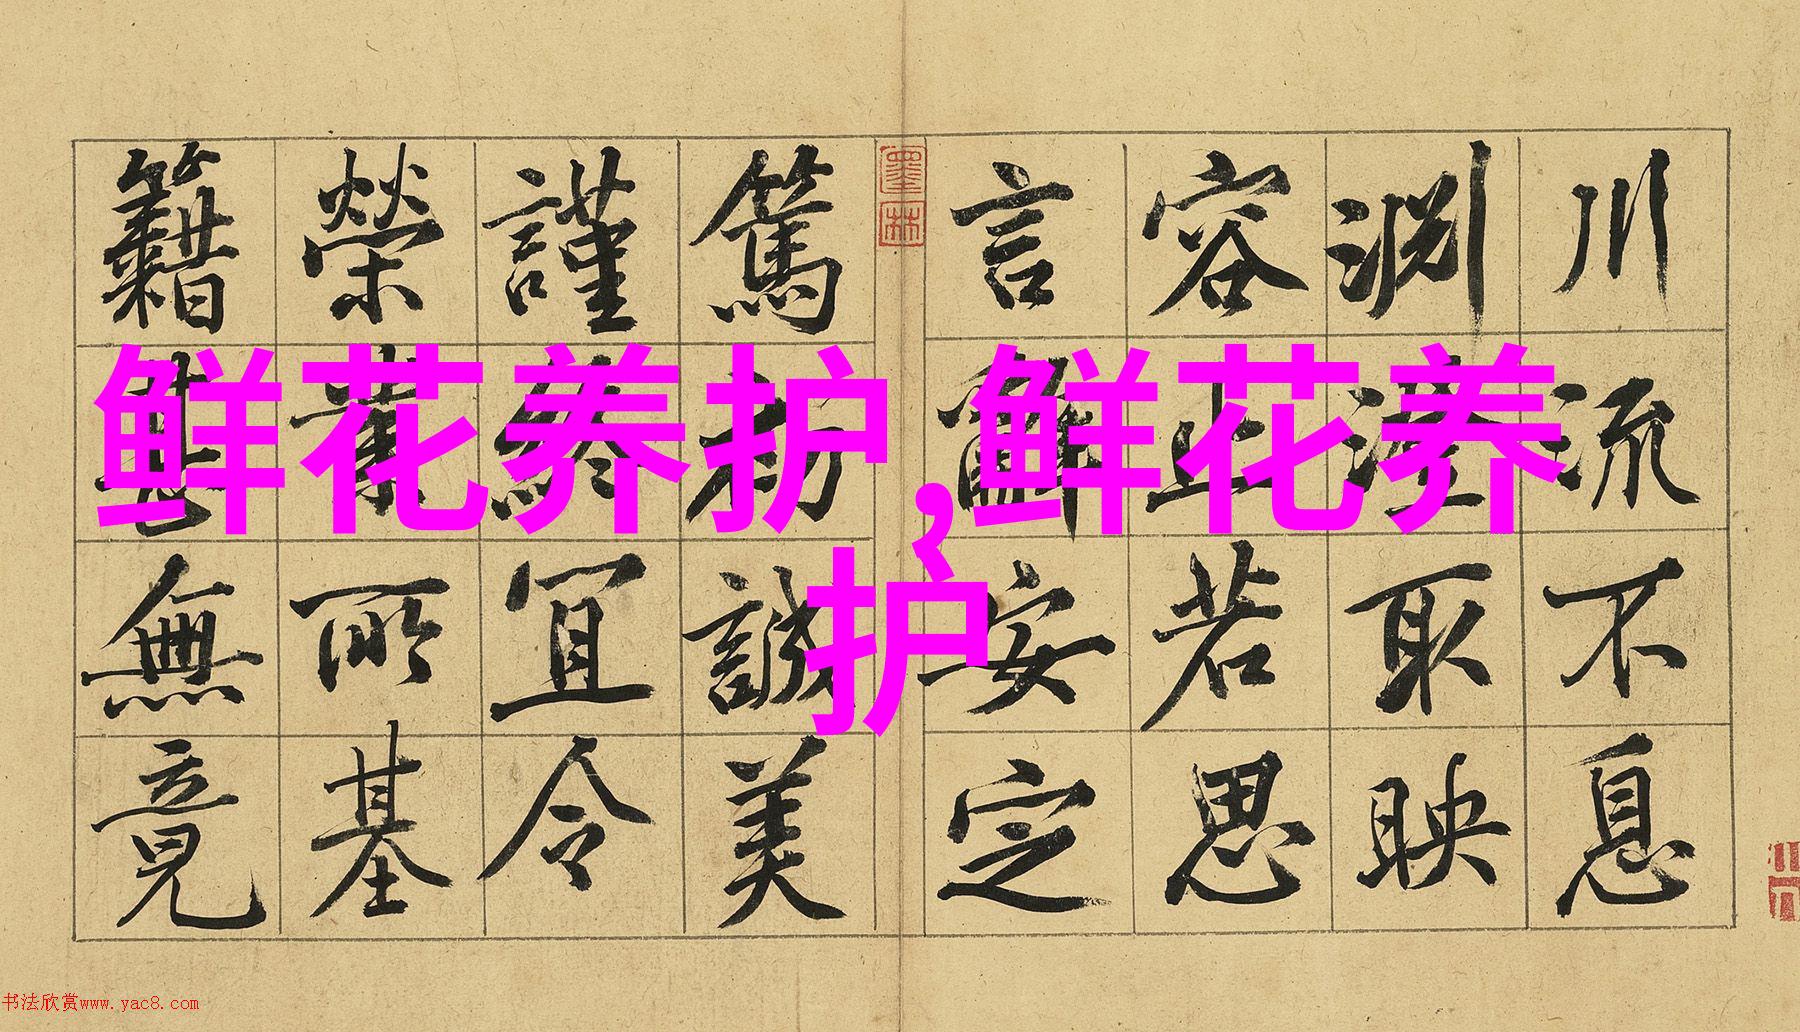 鲜花养护,鲜花养
护
川流不息
淵澄取映
容止若思
言辭安定
墨林
篤初誠美
謹終宜令
榮業所基
籍甚無竟
书法欣赏www.yac8.com